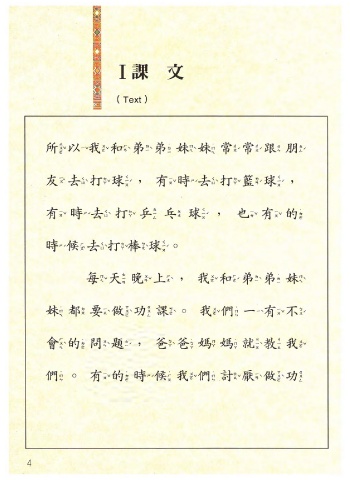 I 課 文
（Text）
所以我和弟弟妹妹常常跟朋
友去打球，有時去打籃球，
有時去打乒乓球，也有的
時候去打棒球。
每天晚上，我和弟弟妹
妹都要做功課。我們一有不
會的問題，爸爸媽媽就教我
們。有的時候我們討厭做功
4